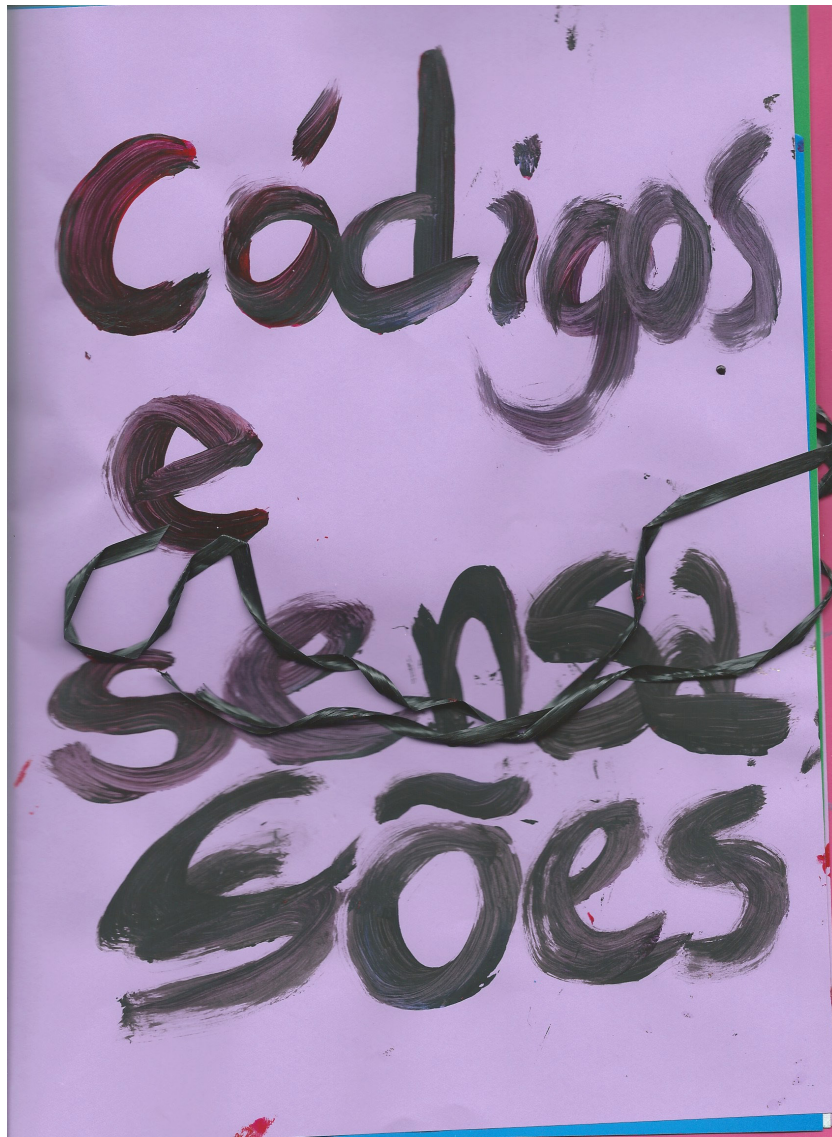 Códigos
e
sensa
sões